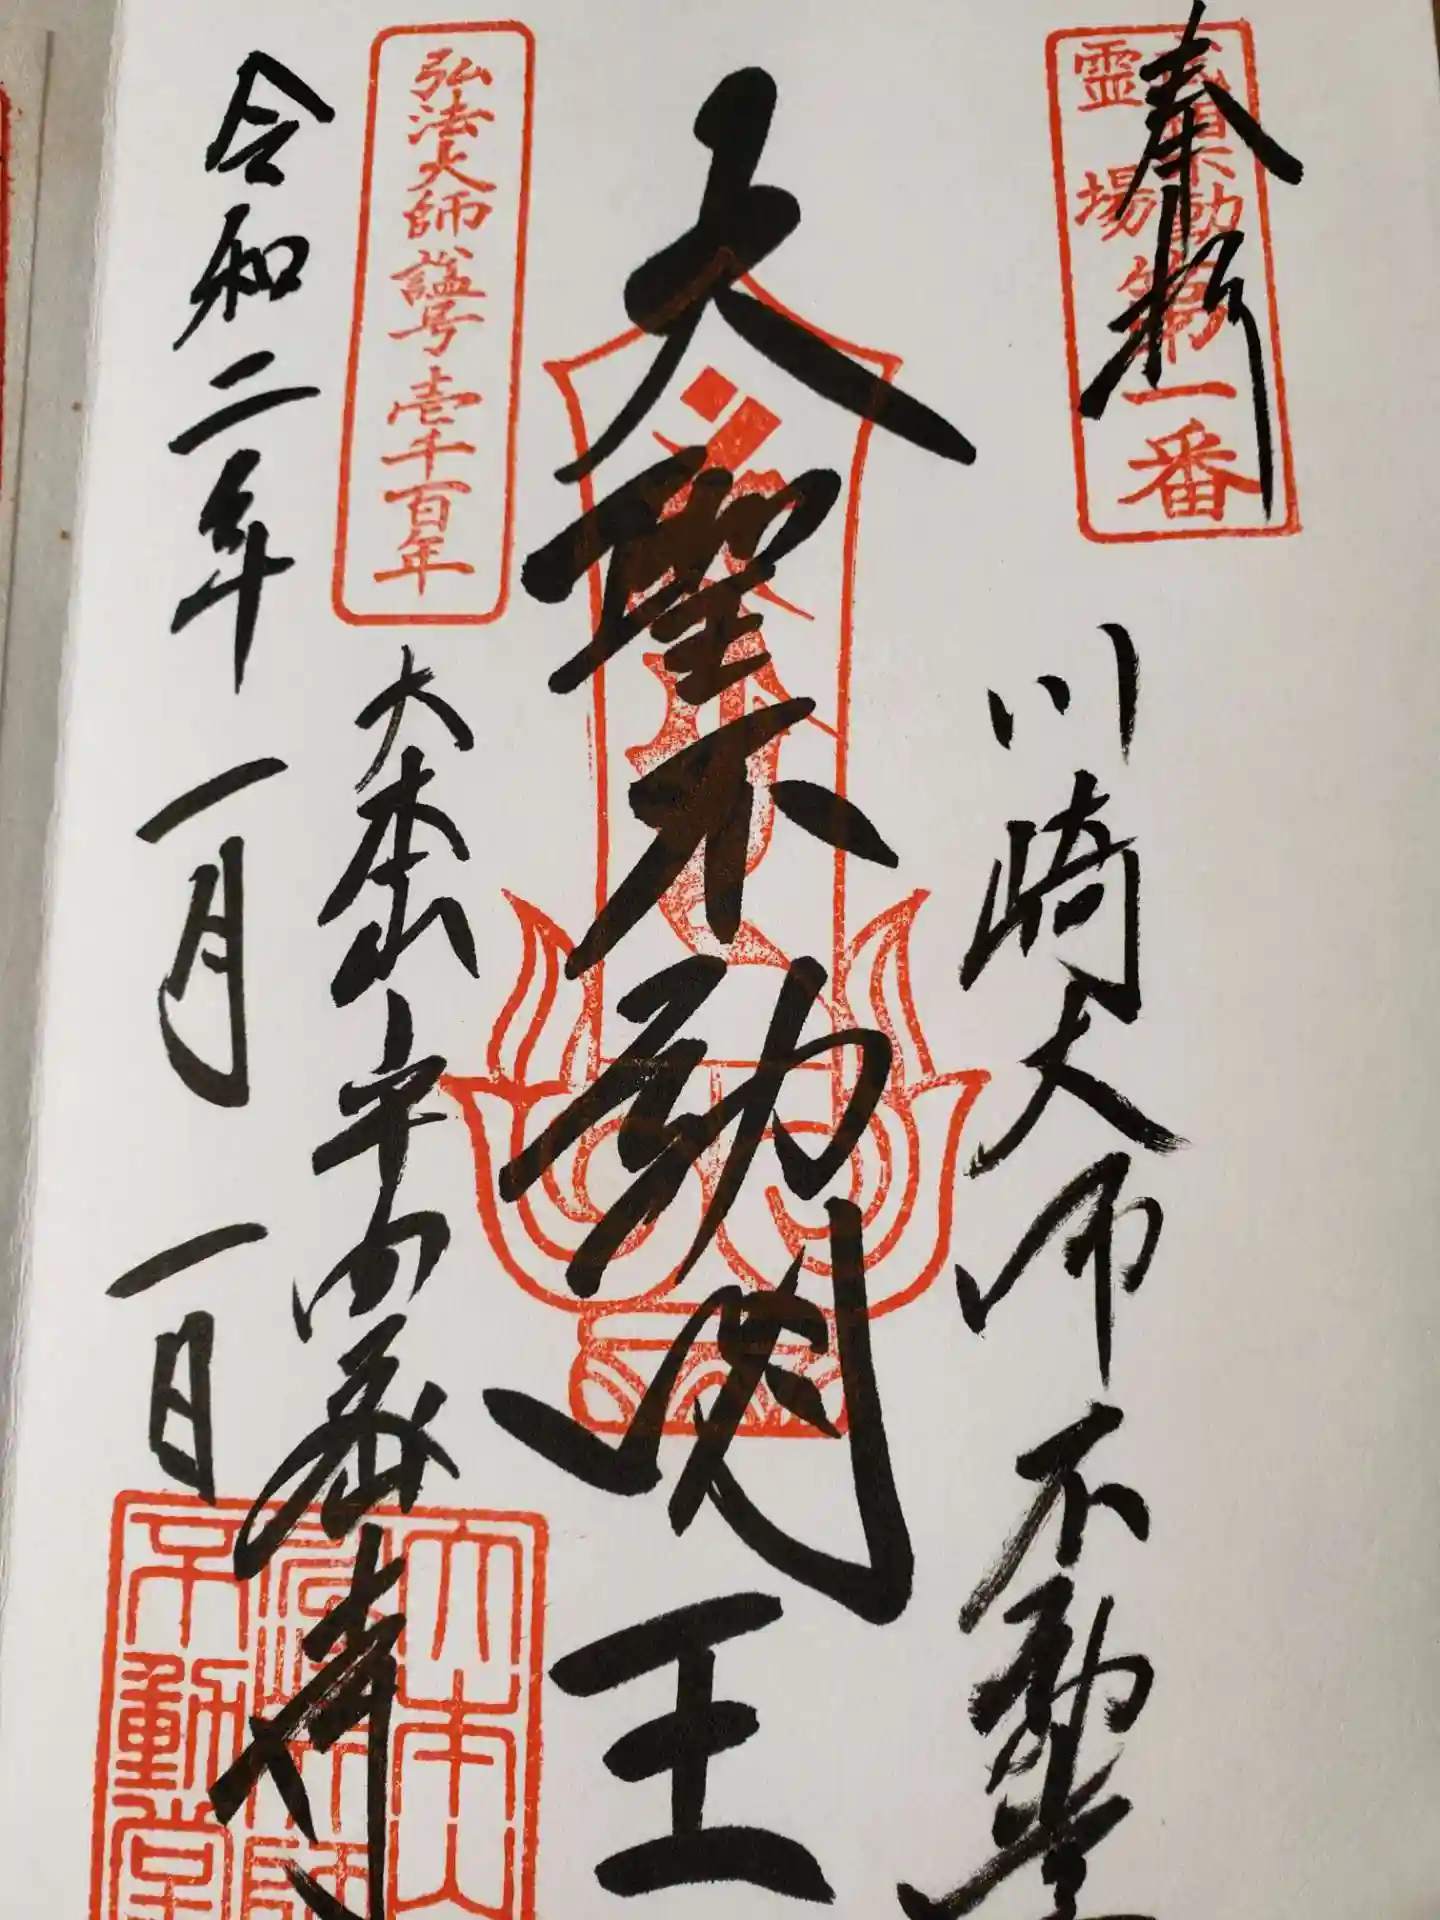 奉拝
武相不動
霊場
第一番
川崎大师不動堂
大聖不動明王
弘法大師諡号壱千百年
大本山平間寺
令和二年一月一日
大本山
不動堂